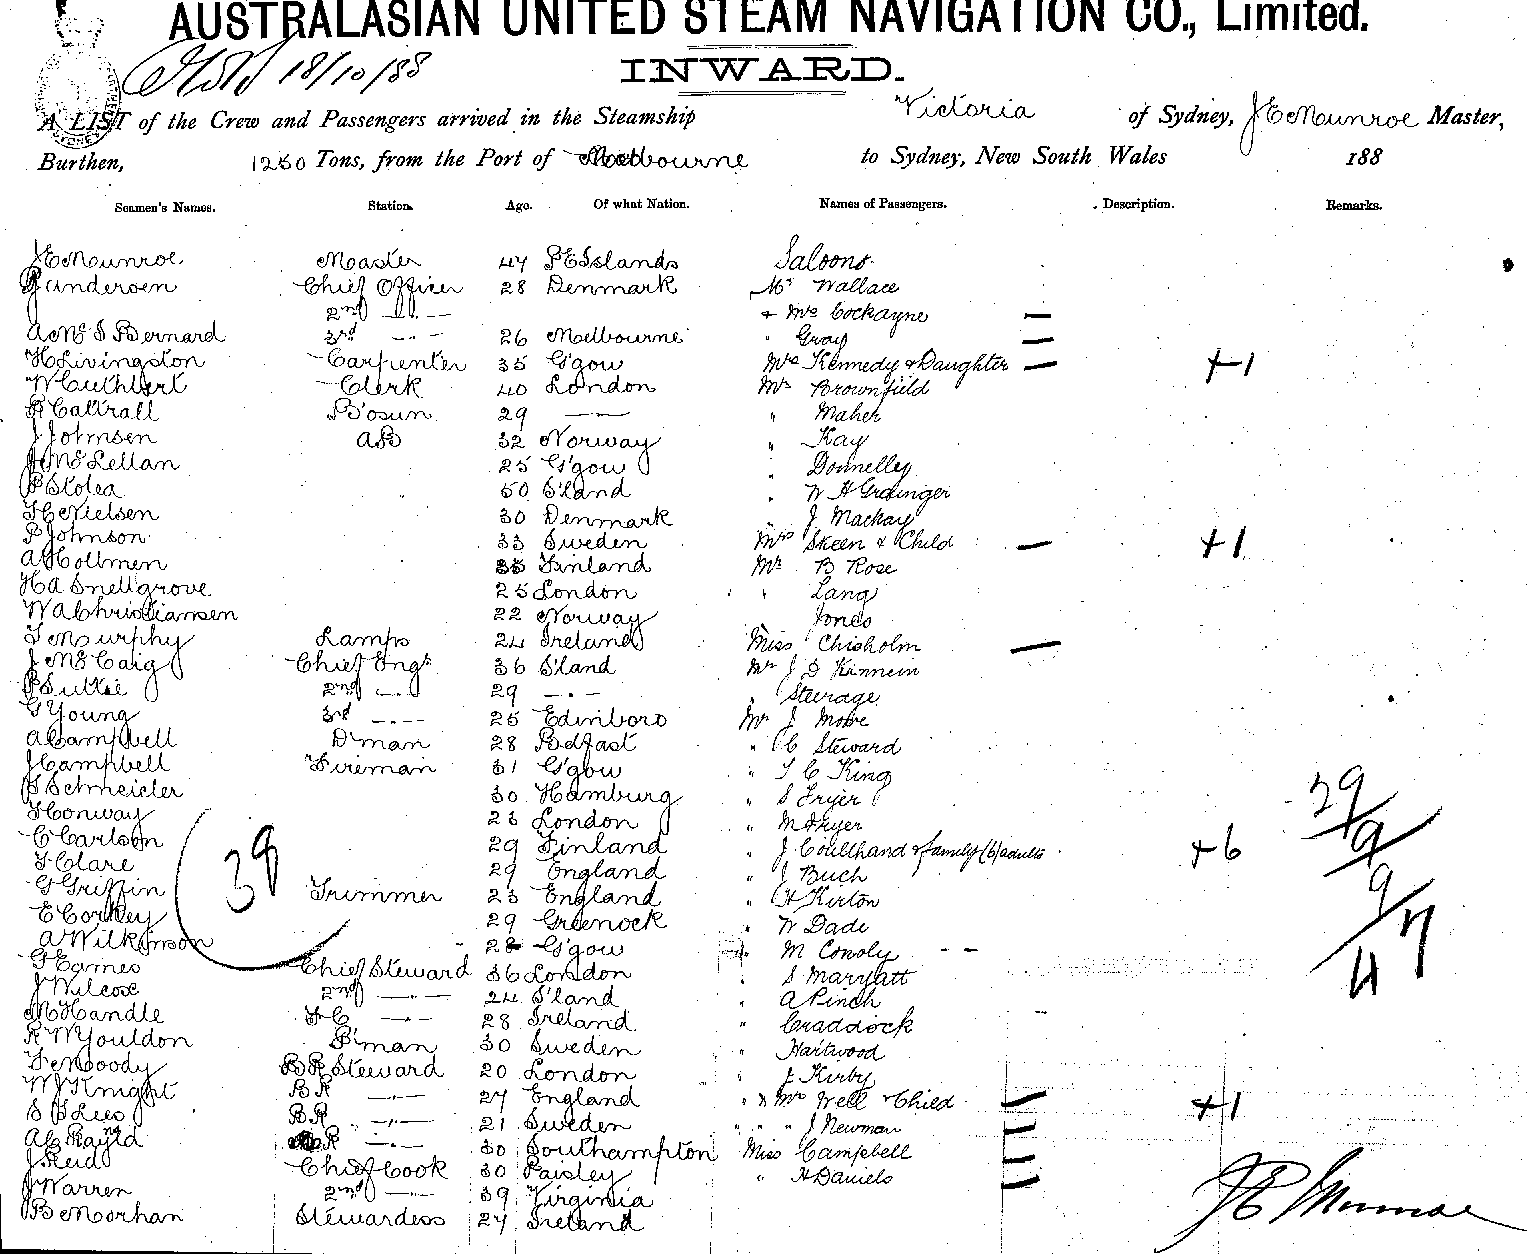 AUSTRALASIAN UNITED STEAM NAVIGATION CO., Limited.
18/10/88
INWARD.
A LIST of the Crew and Passengers arrived in the Steamship Victoria of Sydney, J E Munroe Master,
Burthen, 1250 Tons, from the Port of Melbourne to Sydney, New South Wales 188
Seamen's Names. Station. Age. Of what Nation. Names of Passengers. Description. Remarks.
J E Munroe Master 47 P E Islands Saloons
J Andersen Chief Officer 28 Denmark Mr Wallace
2nd —"— & Mrs Cockayne —
A McS Bernard 3rd —"— 26 Melbourne " Gray —
H Livingston Carpenter 35 G'gow Mrs Kennedy & Daughter — +1
W Cuthbert Clerk 40 London Mr Brownfield
R Cattrall B'osun 29 —"— " Maher
J Johnsen AB 32 Norway " Kay
J McLellan 25 G'gow " Donnelley
P Stolea 50 S'land " W H Grainger
H C Nielsen 30 Denmark J Mackay
P Johnson 33 Sweden Mrs Skeen & Child — +1
A Holtmen 35 Finland Mr B Rose
H A Snellgrove 25 London " Lang
W A Christiansen 22 Norway Jones
T Murphy Lamps 24 Ireland Miss Chisholm —
J McCaig Chief Engr 36 S'land Mr J D Kinnein
P Suttie 2nd —"— 29 —"— Steerage
G Young 3rd —"— 25 Edinboro Mr J Moore
A Campbell D'man 28 Belfast " C Steward
J Campbell Fireman 31 G'gow " T C King
P Schmeider 30 Hamburg " S Fryer 29
F Conway 23 London " M Fryer 9
C Carlson 29 Finland " J Coulthand & family (6) adults +6
F Clare 38 29 England " J Buch 9
G Griffin Trimmer 23 England " H Kirton
E Corkey 29 Greenock " W Dade 47
A Wilkinson 28 G'gow M Conoly – –
G Eames Chief Steward 36 London " S Maryatt
J Wilcox 2nd —"— 24 S'land " A Pinch
M Handle F C —"— 28 Ireland " Craddock
R W Youldon P'man 30 Sweden " Hartwood
F Moody B R Steward 20 London " J Kirby
W J Knight B R —"— 27 England " " Mrs Well & Child — +1
S P Lees B R —"— 21 Sweden " " " J Newman —
A C B R —"— 30 Southampton Miss Campbell —
J Reid Chief Cook 30 Paisley " H Daniels —
J Warren 2nd —"— 39 Virginia
B Morhan Stewardess 27 Ireland
J E Munroe